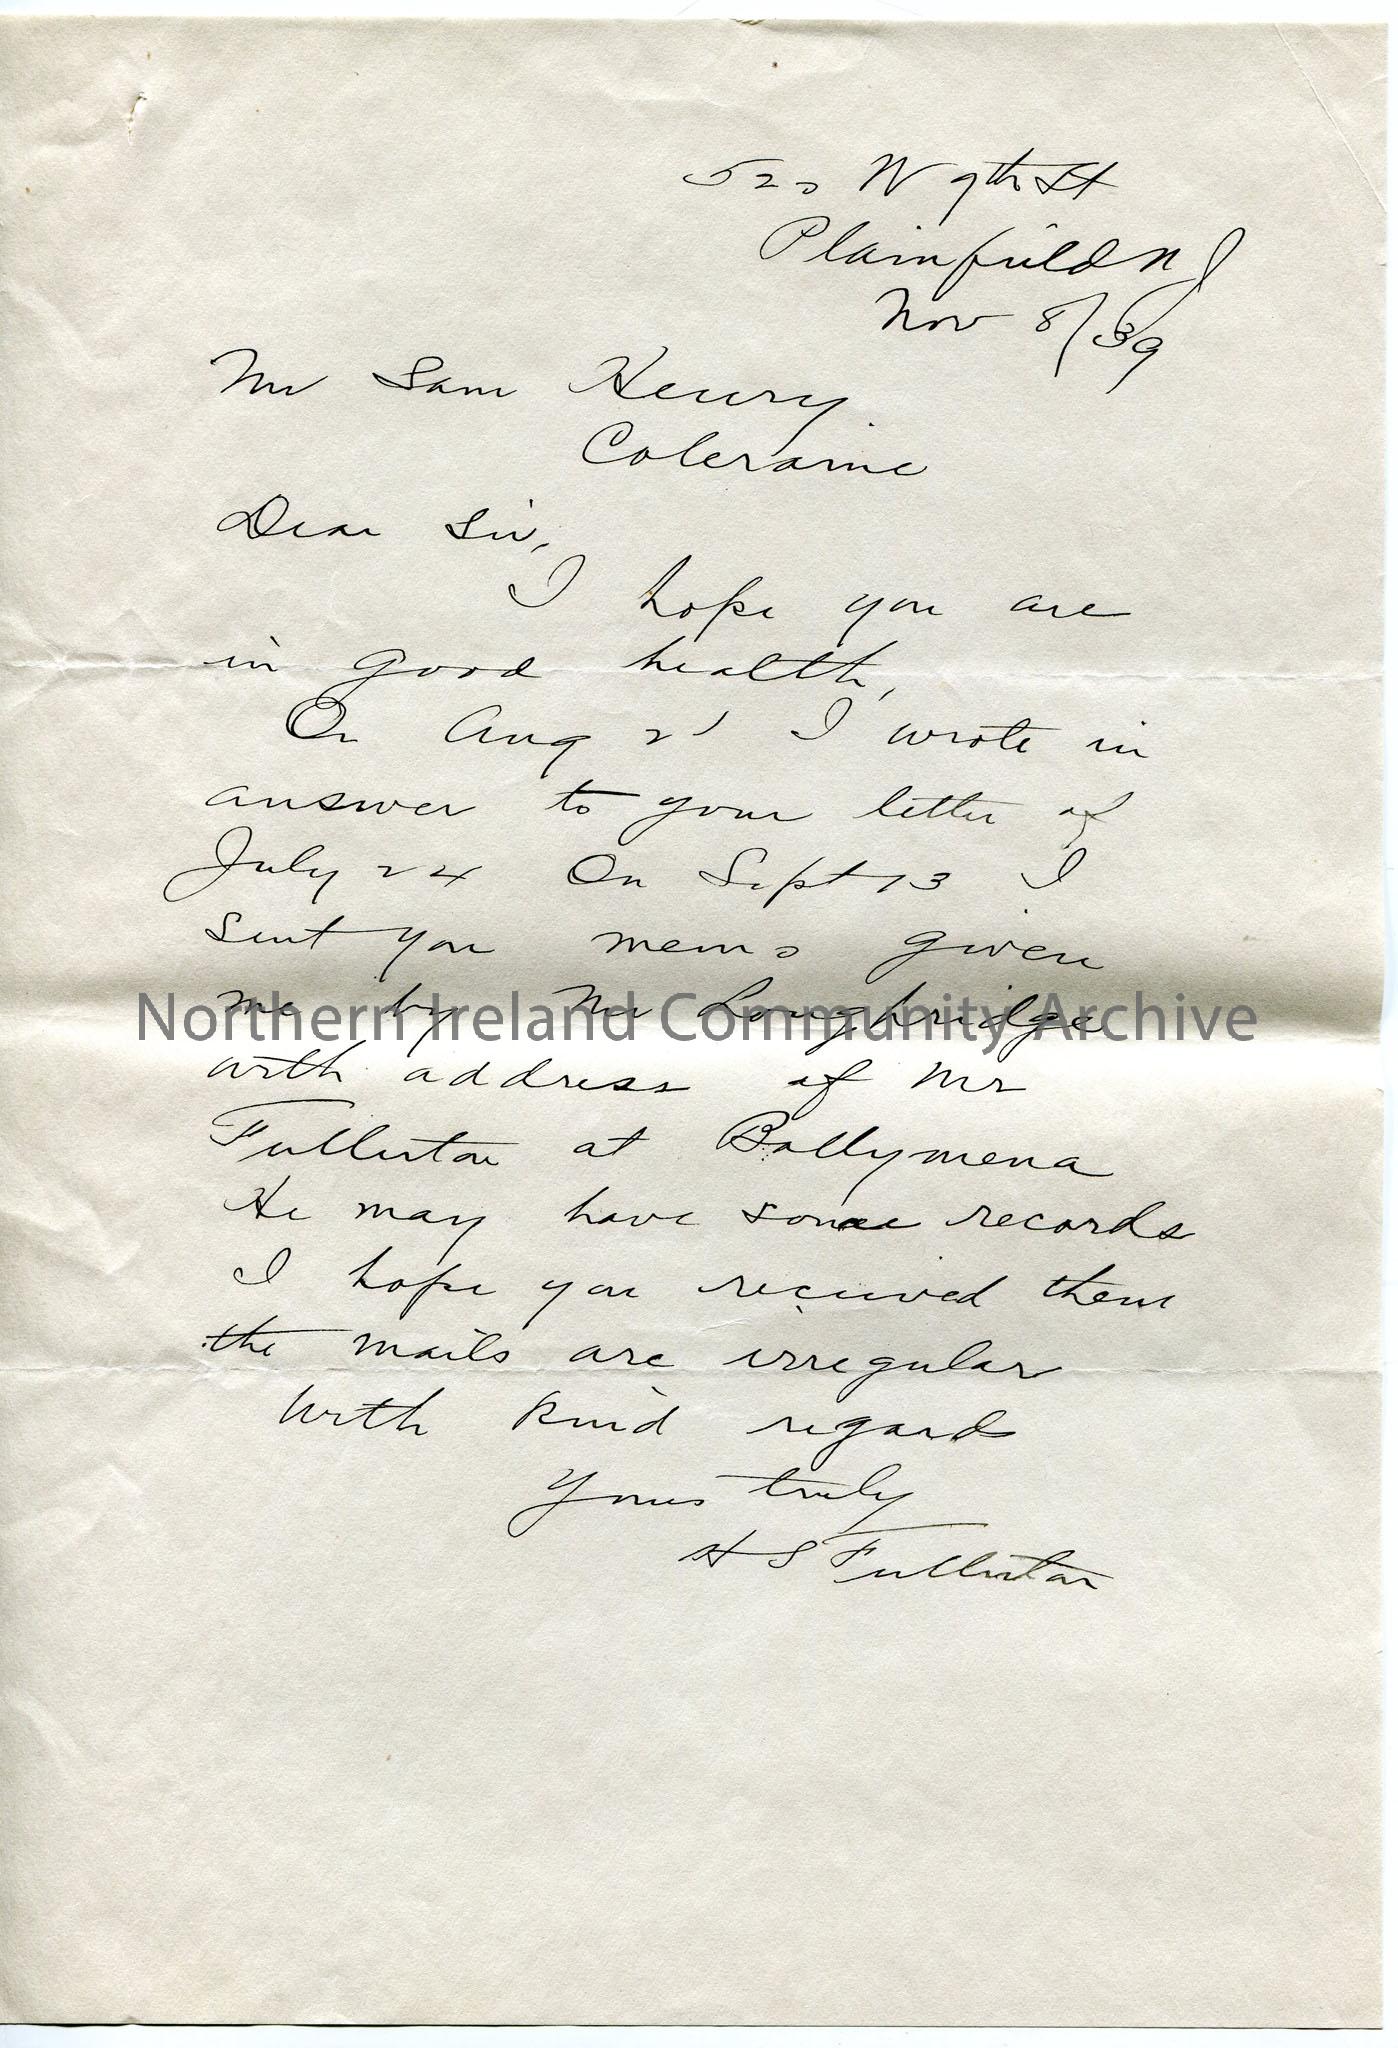 520 W 9th St
Plainfield N J
Nov 8/39
Mr Sam Henry
Coleraine
Dear Sir,
I hope you are
in good health,
On Aug 21 I wrote in
answer to your letter of
July 24 On Sept 13 I
sent you memo given
me by Mr Loughridge
with address of Mr
Fullerton at Ballymena
He may have some records
I hope you received them
the mails are irregular
With kind regards
Yours truly
H S Fullerton
Northern Ireland Community Archive